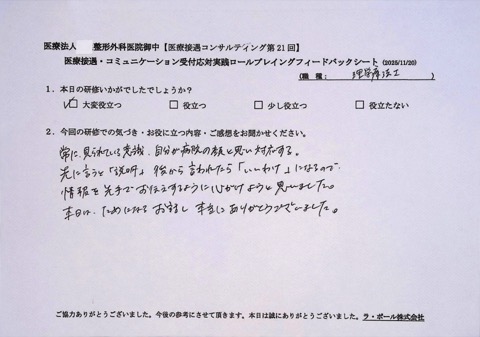 医療法人 整形外科医院御中【医療接遇コンサルティング第21回】
医療接遇・コミュニケーション受付応対実践ロールプレイングフィードバックシート (2025/11/20)
(職 種: 理学療法士 )
1. 本日の研修いかがでしたでしょうか?
☑ 大変役立つ □ 役立つ □ 少し役立つ □ 役立たない
2. 今回の研修での気づき・お役に立つ内容・ご感想をお聞かせください。
常に見られている意識、自分が病院の顔と思い対応する。
先に言うと「説明」後から言われたら「いいわけ」になるので、
情報を先手でお伝えするように心がけようと思いました。
本日は、ためになるお話し 本当にありがとうございました。
ご協力ありがとうございました。今後の参考にさせて頂きます。本日は誠にありがとうございました。ラ・ポール株式会社